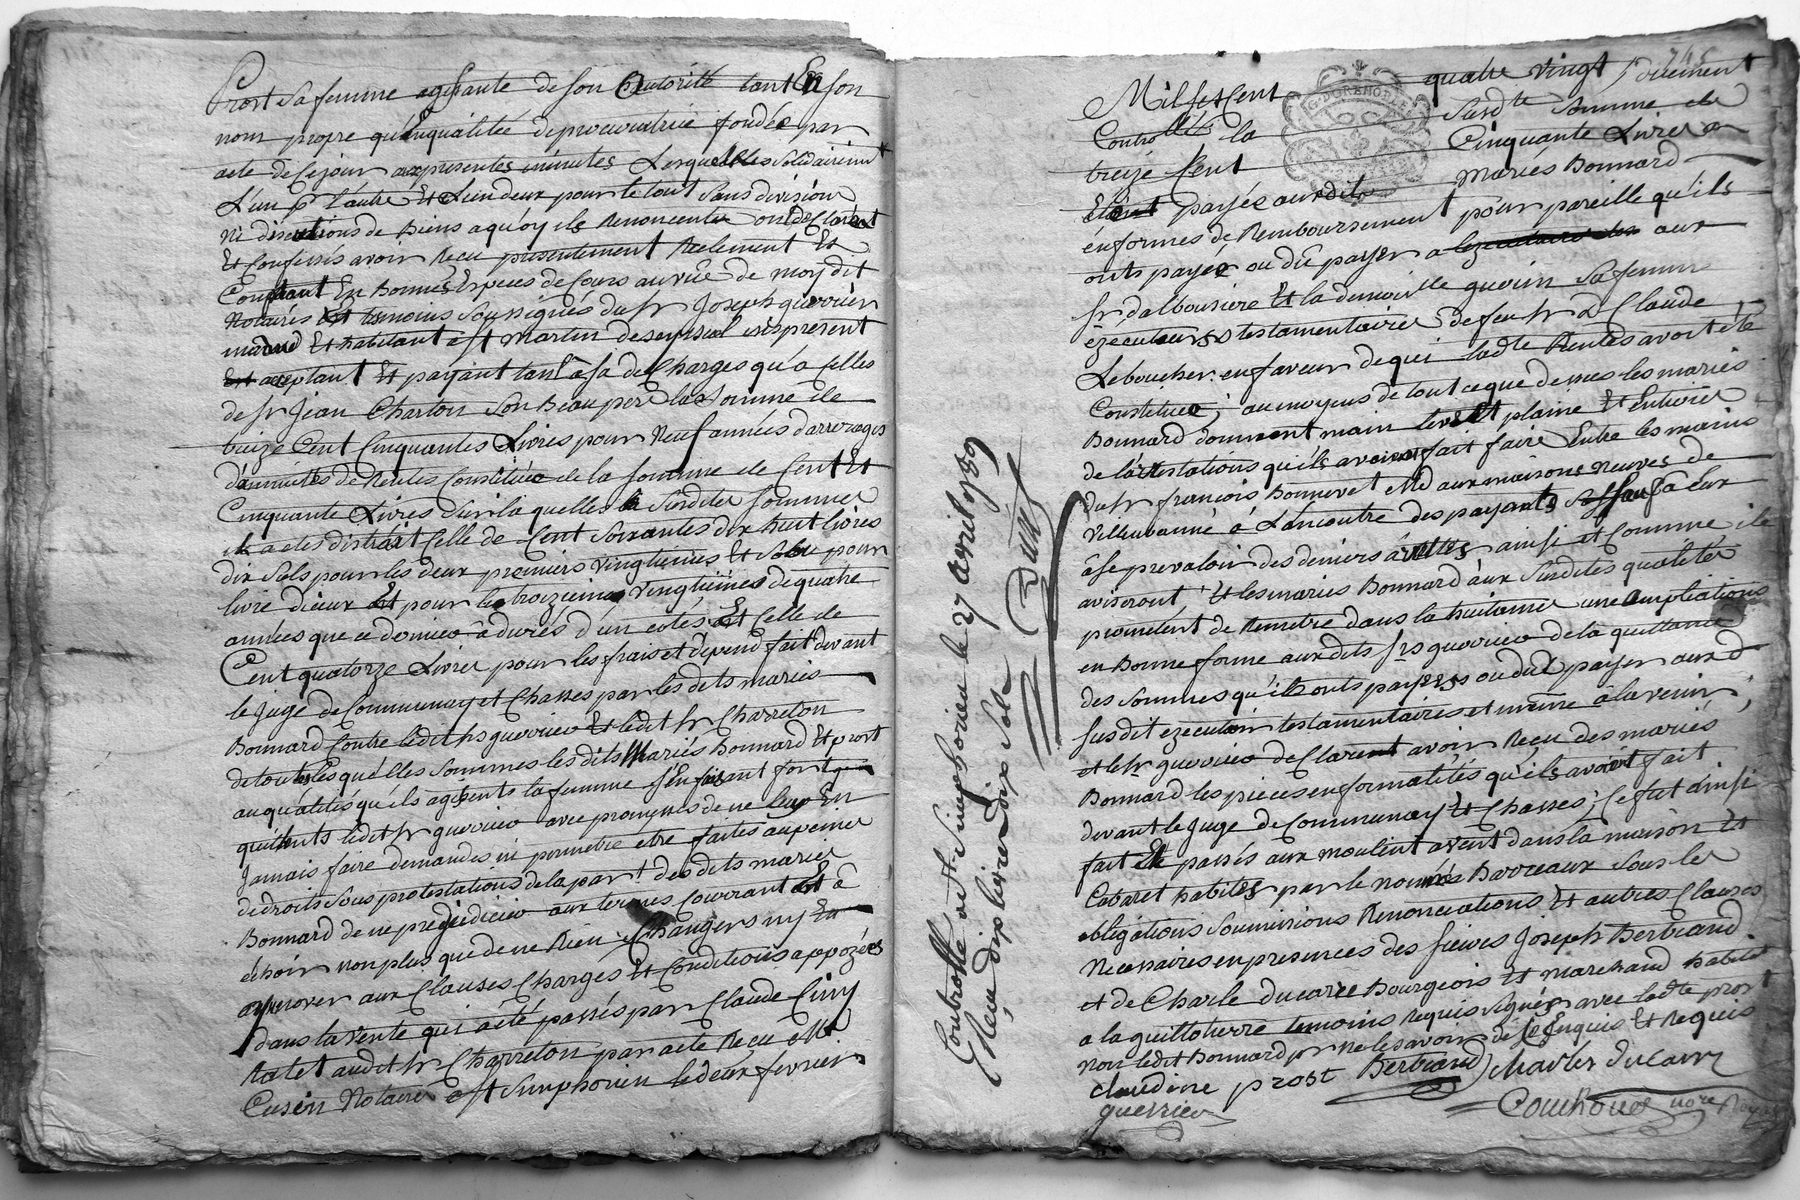 Prost sa femme agissante de son autorité tant En son
nom propre qu'enqualitée deprocuratrice fondée par
acte de cejour apresentes minutes Lesquelles solidairemt
L'un pr l'autre Et L'un deux pour le tout sans division
Ni discutions de Biens aquoy ils Renoncentes ont declarént
Et confessés avoir Recu presentement Reelement Et
Comptant En Bonnes Especes de Cours au vûe de moy dit
Notaires Et temoins soussignés du sr Joseph guerrier
marchd Et habitant a st Martin icy present
acceptant Et payant tant a sa de Charges qu'a celles
de sr Jean Charton Son Beau pere la Somme de
treize Cent Cinquantes Livres pour Neuf années d'arrerages
de Rentes Constituée de la somme de Cent Et
Cinquante Livres Sur la quelle Susdites sommes
il a etes distrait Celle de Cent Soixantes dix huit livres
dix Sols pour les deux premiers Vingtiemes Et Sols pour
livre d'iceux Et pour le troizieme Vingtiemes de quatre
années que ce dernier a durés d'un cotés Et Celle de
Cent quatorze Livres pour les frais et depend fait devant
le juge de Communay et Chasses par les dits mariés
Bonnard Contre ledit sr guerrier Et ledit sr Charreton
de toutes les quelles Sommes les dits Mariés Bonnard Et prost
au qualités qu'ils agissents la femme s'En faisant fort
quittents ledit sr guerrier avec promesses de ne luy En
Jamais faire demandes ni permetre etre faites aupeine
de droits Sous protestations de la part des dits mariés
Bonnard de ne prejeidicier aux termes Courrant Et à
échoir non plus que de ne Rien Changers ny
aux Clauses Charges Et Conditions appozées
dans la vente qui a eté passés par Claude
audit sr Charreton par acte Recu Me
Cusin Notaire a st Simphorien le deux fevrier
Mil sept Cent quatre vingt
Controllé la Susdte Somme de
treize Cent Cinquante Livres
Etant payée auxdits Mariés Bonnard
én formes de Remboursement pour pareille qu'ils
onts payée ou dû payer a aux
sr dalbousiere Et la demoiselle guerin sa femme
éxécuteurs testamentaires de feu sr Claude
Leboucher en faveur de qui ladte Rentes avoit été
Constituée; au moyens de tout ce que dessus les mariés
Bonnard donnent main levée Et plaine Et Entiere
de l'arrestations qu'ils avoient fait faire Entre les mains
du sr françois Bonneret aux maisons neuves de
Villeurbanne à L'encontre des payants sauf à Eux
à se prevaloir des deniers ainsi et comme ils
aviseront Et les mariés Bonnard aux Susdites qualités
prometent de Remetre dans la huitaines une ampliations
en Bonne forme auxdits srs guerrier de la quittance
des sommes qu'ils onts payees ou du payer aux d
susdit ezecuteur testamentaires et même à la venir;
et le sr guerrier declarent avoir Recu des mariés
Bonnard les pieces en formalités qu'ils avoint fait
devant le juge de Communay Et Chasses; Ce fut ainsi
fait Et passés aux moulint avent dans la maison Et
Cabaret habités par le nommés Barreaux sous les
obligations Soumissions Renonciations Et autres Clauses
Necessaires en presences des sieurs Joseph Bertrand
et de Charle ducarre Bourgeois Et marchand habitt
a la guillotierre temoins Requis signés avec ladte prost
non ledit Bonnard pr ne le savoir de ce Enquis Et Requis
claudine prost Bertrand Charles ducarre
guerrier
Controllé a st Simphorien le 27 avril 1789
Recu dix livres dix sols